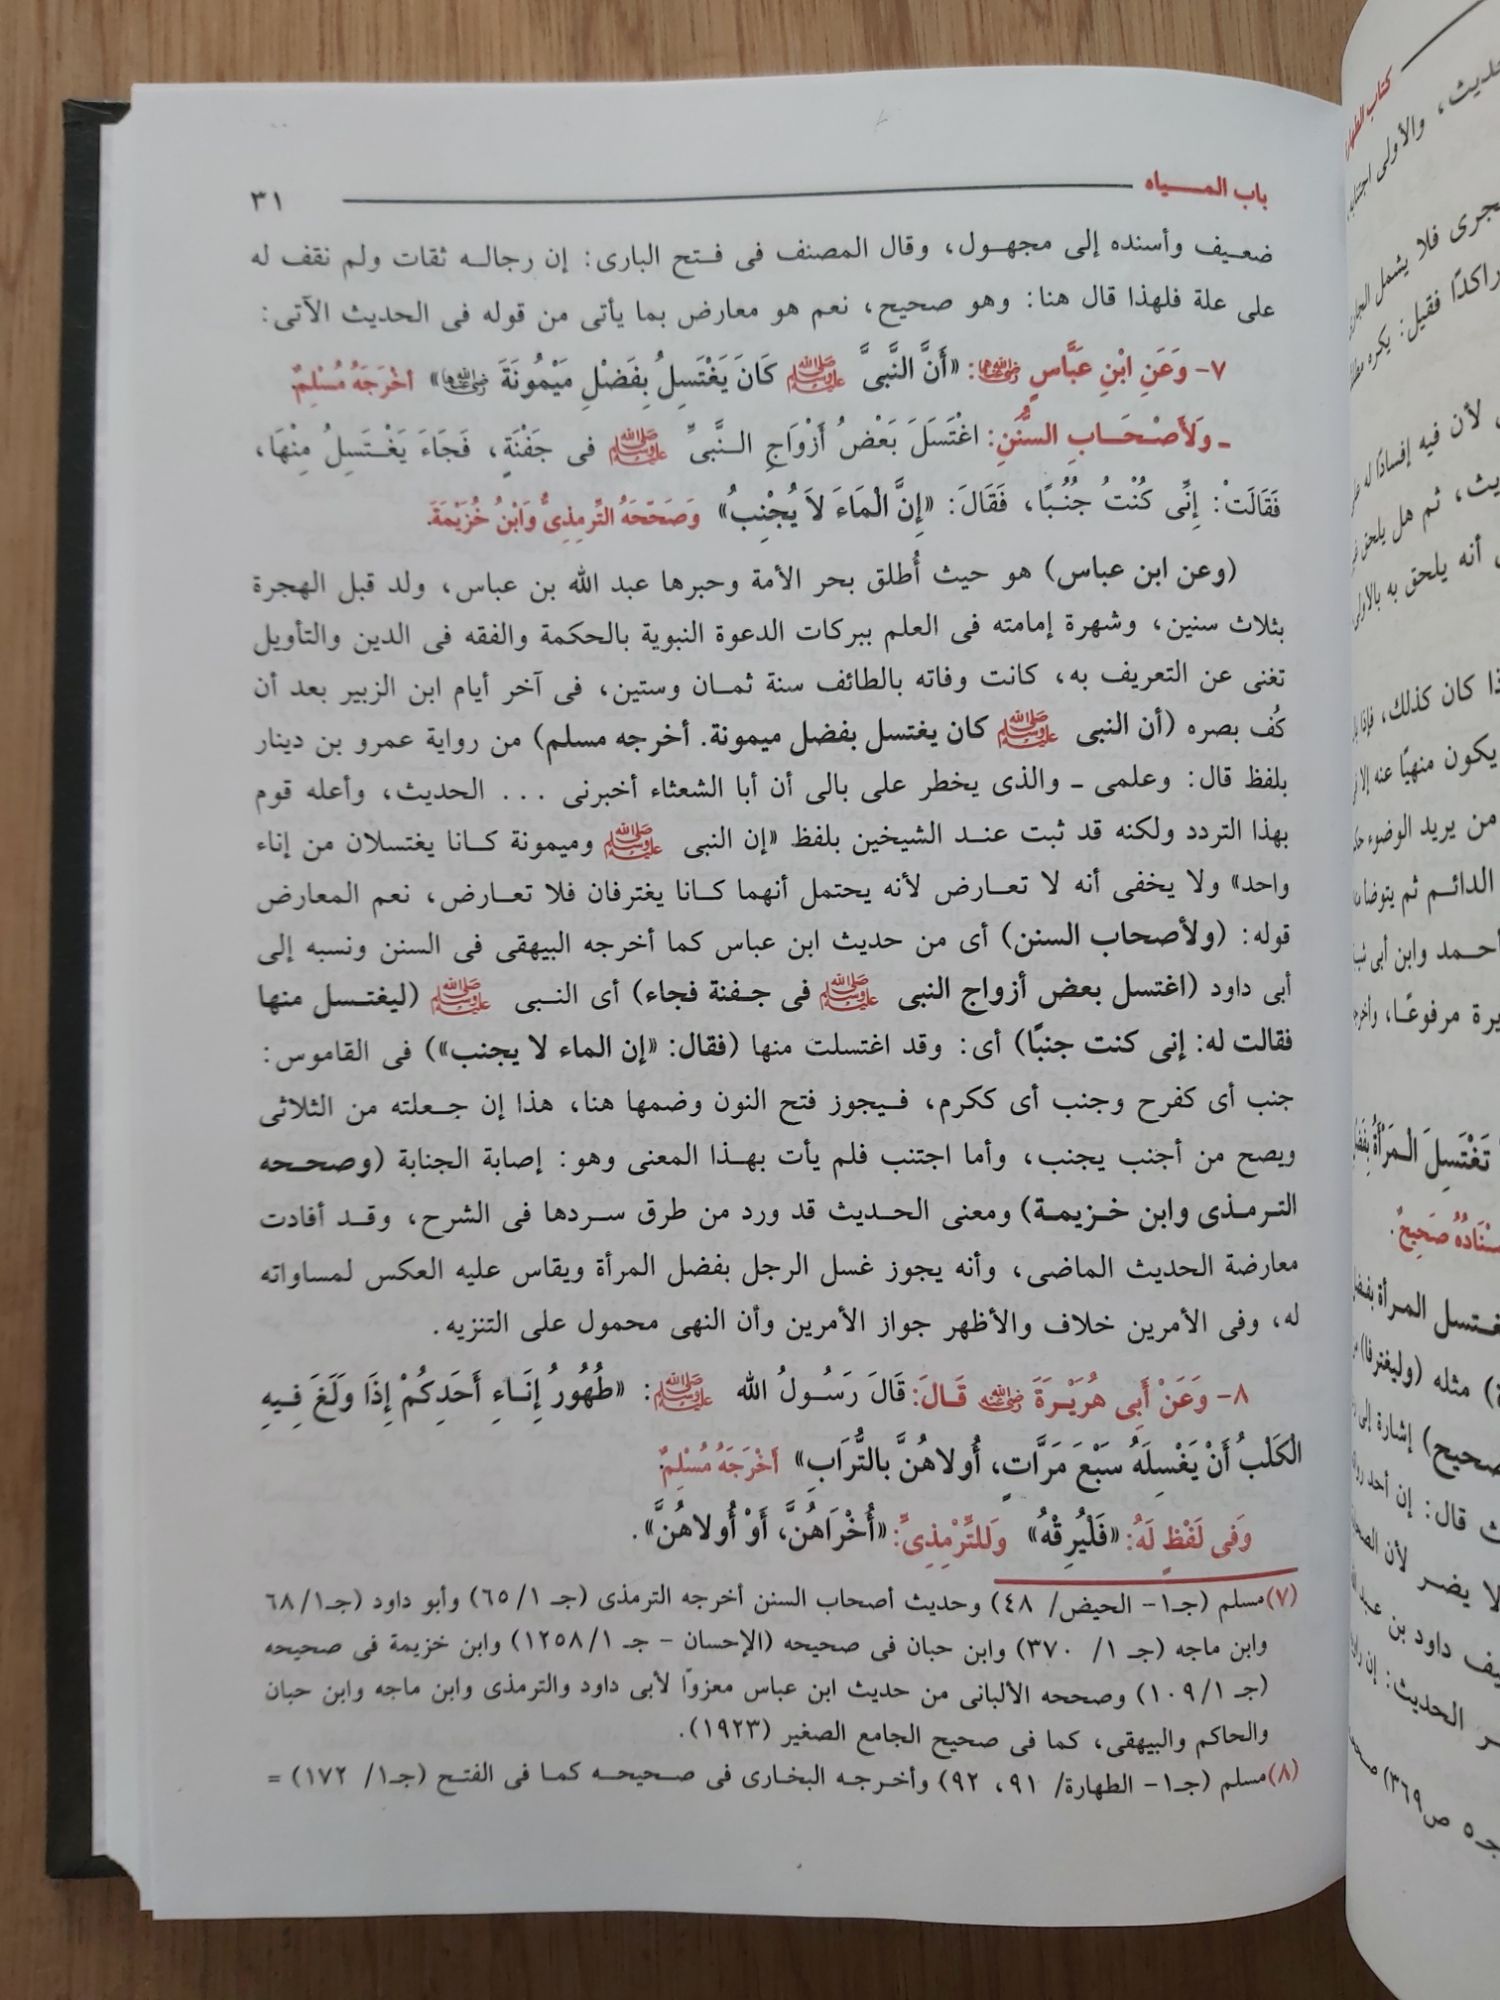 باب المـــياه
٣١
ضعـيف وأسنده إلى مجهـول، وقال المصنف فى فـتح البارى: إن رجالـه ثقات ولم نقف له
على علة فلهذا قال هنا: وهو صحيح، نعم هو معارض بما يأتى من قوله فى الحديث الآتى:
٧- وَعَنِ ابْنِ عَبَّاسٍ رضي الله عنهما: «أَنَّ النَّبىَّ ﷺ كَانَ يَغْتَسِلُ بِفَضْلِ مَيْمُونَةَ رضي الله عنها» أخْرَجَهُ مُسْلِمٌ.
ـ وَلأَصْـحَـابِ السُّنَنِ: اغْتَسَلَ بَعْضُ أَزْوَاجِ الـنَّبىِّ ﷺ فى جَفْنَةٍ، فَجَاءَ يَغْـتَسِلُ مِنْهَا،
فَقَالَتْ: إنِّى كُنْتُ جُنُبًا، فَقَالَ: «إِنَّ الْمَاءَ لاَ يُجْنِبُ» وَصَحَّحَهُ التِّرمِذِىُّ وَابْنُ خُزَيْمَةَ.
(وعن ابن عباس) هو حيث أُطلق بحر الأمة وحبرها عبد الله بن عباس، ولد قبل الهجرة
بثلاث سنين، وشهرة إمامته فى العلم ببركات الدعوة النبوية بالحكمة والفقه فى الدين والتأويل
تغنى عن التعريف به، كانت وفاته بالطائف سنة ثمـان وستين، فى آخر أيام ابن الزبير بعد أن
كُف بصره (أن النبى ﷺ كان يغتسل بفضل ميمونة. أخرجه مسلم) من رواية عمرو بن دينار
بلفظ قال: وعلمى ـ والذى يخطر على بالى أن أبا الشعثاء أخبرنى ... الحديث، وأعله قوم
بهذا التردد ولكنه قد ثبت عنـد الشيخين بلفظ «إن النبى ﷺ وميمونة كـانا يغتسلان من إناء
واحد» ولا يخفى أنه لا تعـارض لأنه يحتمل أنهما كـانا يغترفان فلا تعـارض، نعم المعارض
قوله: (ولأصحاب السنن) أى من حديث ابن عباس كما أخرجه البيهقى فى السنن ونسبه إلى
أبى داود (اغتسل بعض أزواج النبى ﷺ فى جـفنة فجاء) أى النـبى ﷺ (ليغتـسل منها
فقالت له: إنى كنت جنبًا) أى: وقد اغتسلت منها (فقال: «إن الماء لا يجنب») فى القاموس:
جنب أى كفرح وجنب أى ككرم، فـيجوز فتح النون وضمها هنا، هذا إن جـعلته من الثلاثى
ويصح من أجنب يجنب، وأما اجتنب فلم يأت بهـذا المعنى وهو: إصابة الجنابة (وصحـحه
التـرمـذى وابن خـزيمـة) ومعنى الحـديث قد ورد من طرق سـردها فى الشرح، وقـد أفادت
معارضة الحديث الماضى، وأنه يجوز غسل الرجل بفضل المرأة ويقاس عليه العكس لمساواته
له، وفى الأمرين خلاف والأظهر جواز الأمرين وأن النهى محمول على التنزيه.
٨- وَعَنْ أَبِى هُرَيْـرَةَ رضي الله عنه قَـالَ: قَالَ رَسُـولُ الله ﷺ: «طُهُورُ إِنَـاءِ أَحَدِكُمْ إِذَا وَلَغَ فِـيهِ
الْكَلْبُ أَنْ يَغْسِلَهُ سَبْعَ مَرَّاتٍ، أُولاهُنَّ بالتُّرَابِ» أخْرَجَهُ مُسْلِمٌ.
وَفى لَفْظٍ لَهُ: «فَلْيُرِقْهُ» وَللتِّرْمِذِىِّ: «أُخْرَاهُنَّ، أَوْ أُولاهُنَّ».
(٧) مسلم (جـ١- الحيض/ ٤٨) وحديث أصحاب السنن أخرجه الترمذى (جـ ١/ ٦٥) وأبو داود (جـ١/ ٦٨
وابن ماجه (جـ ١/ ٣٧٠) وابن حبان فى صحيحه (الإحسان - جـ ١/ ١٢٥٨) وابن خزيمة فى صحيحه
(جـ ١/ ١٠٩) وصححه الألبانى من حديث ابن عباس معزوًا لأبى داود والترمذى وابن ماجه وابن حبان
والحاكم والبيهقى، كما فى صحيح الجامع الصغير (١٩٢٣).
(٨) مسلم (جـ١- الطهارة/ ٩١، ٩٢) وأخـرجـه البخارى فى صـحيحـه كمـا فى الفتـح (جـ١/ ١٧٢) =